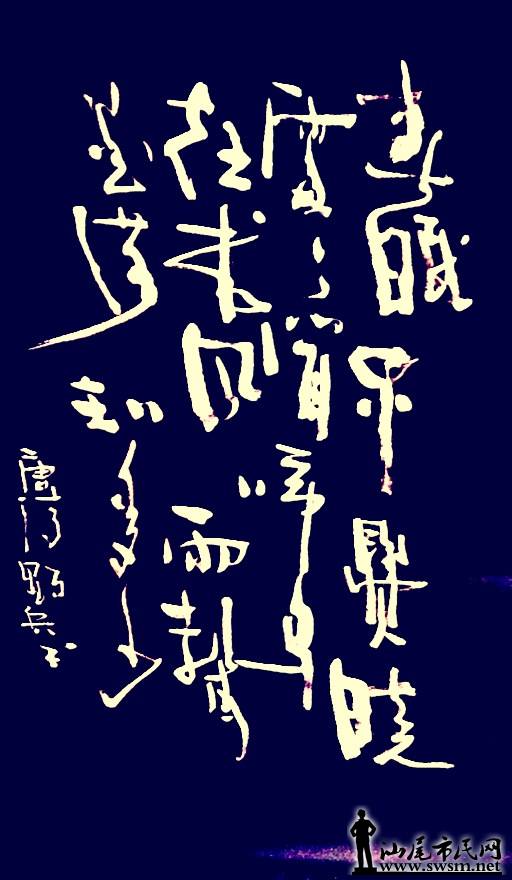 春眠不覺曉
處々聞啼鳥
夜来风雨聲
花落知多少
汕尾市民网
www.swsm.net